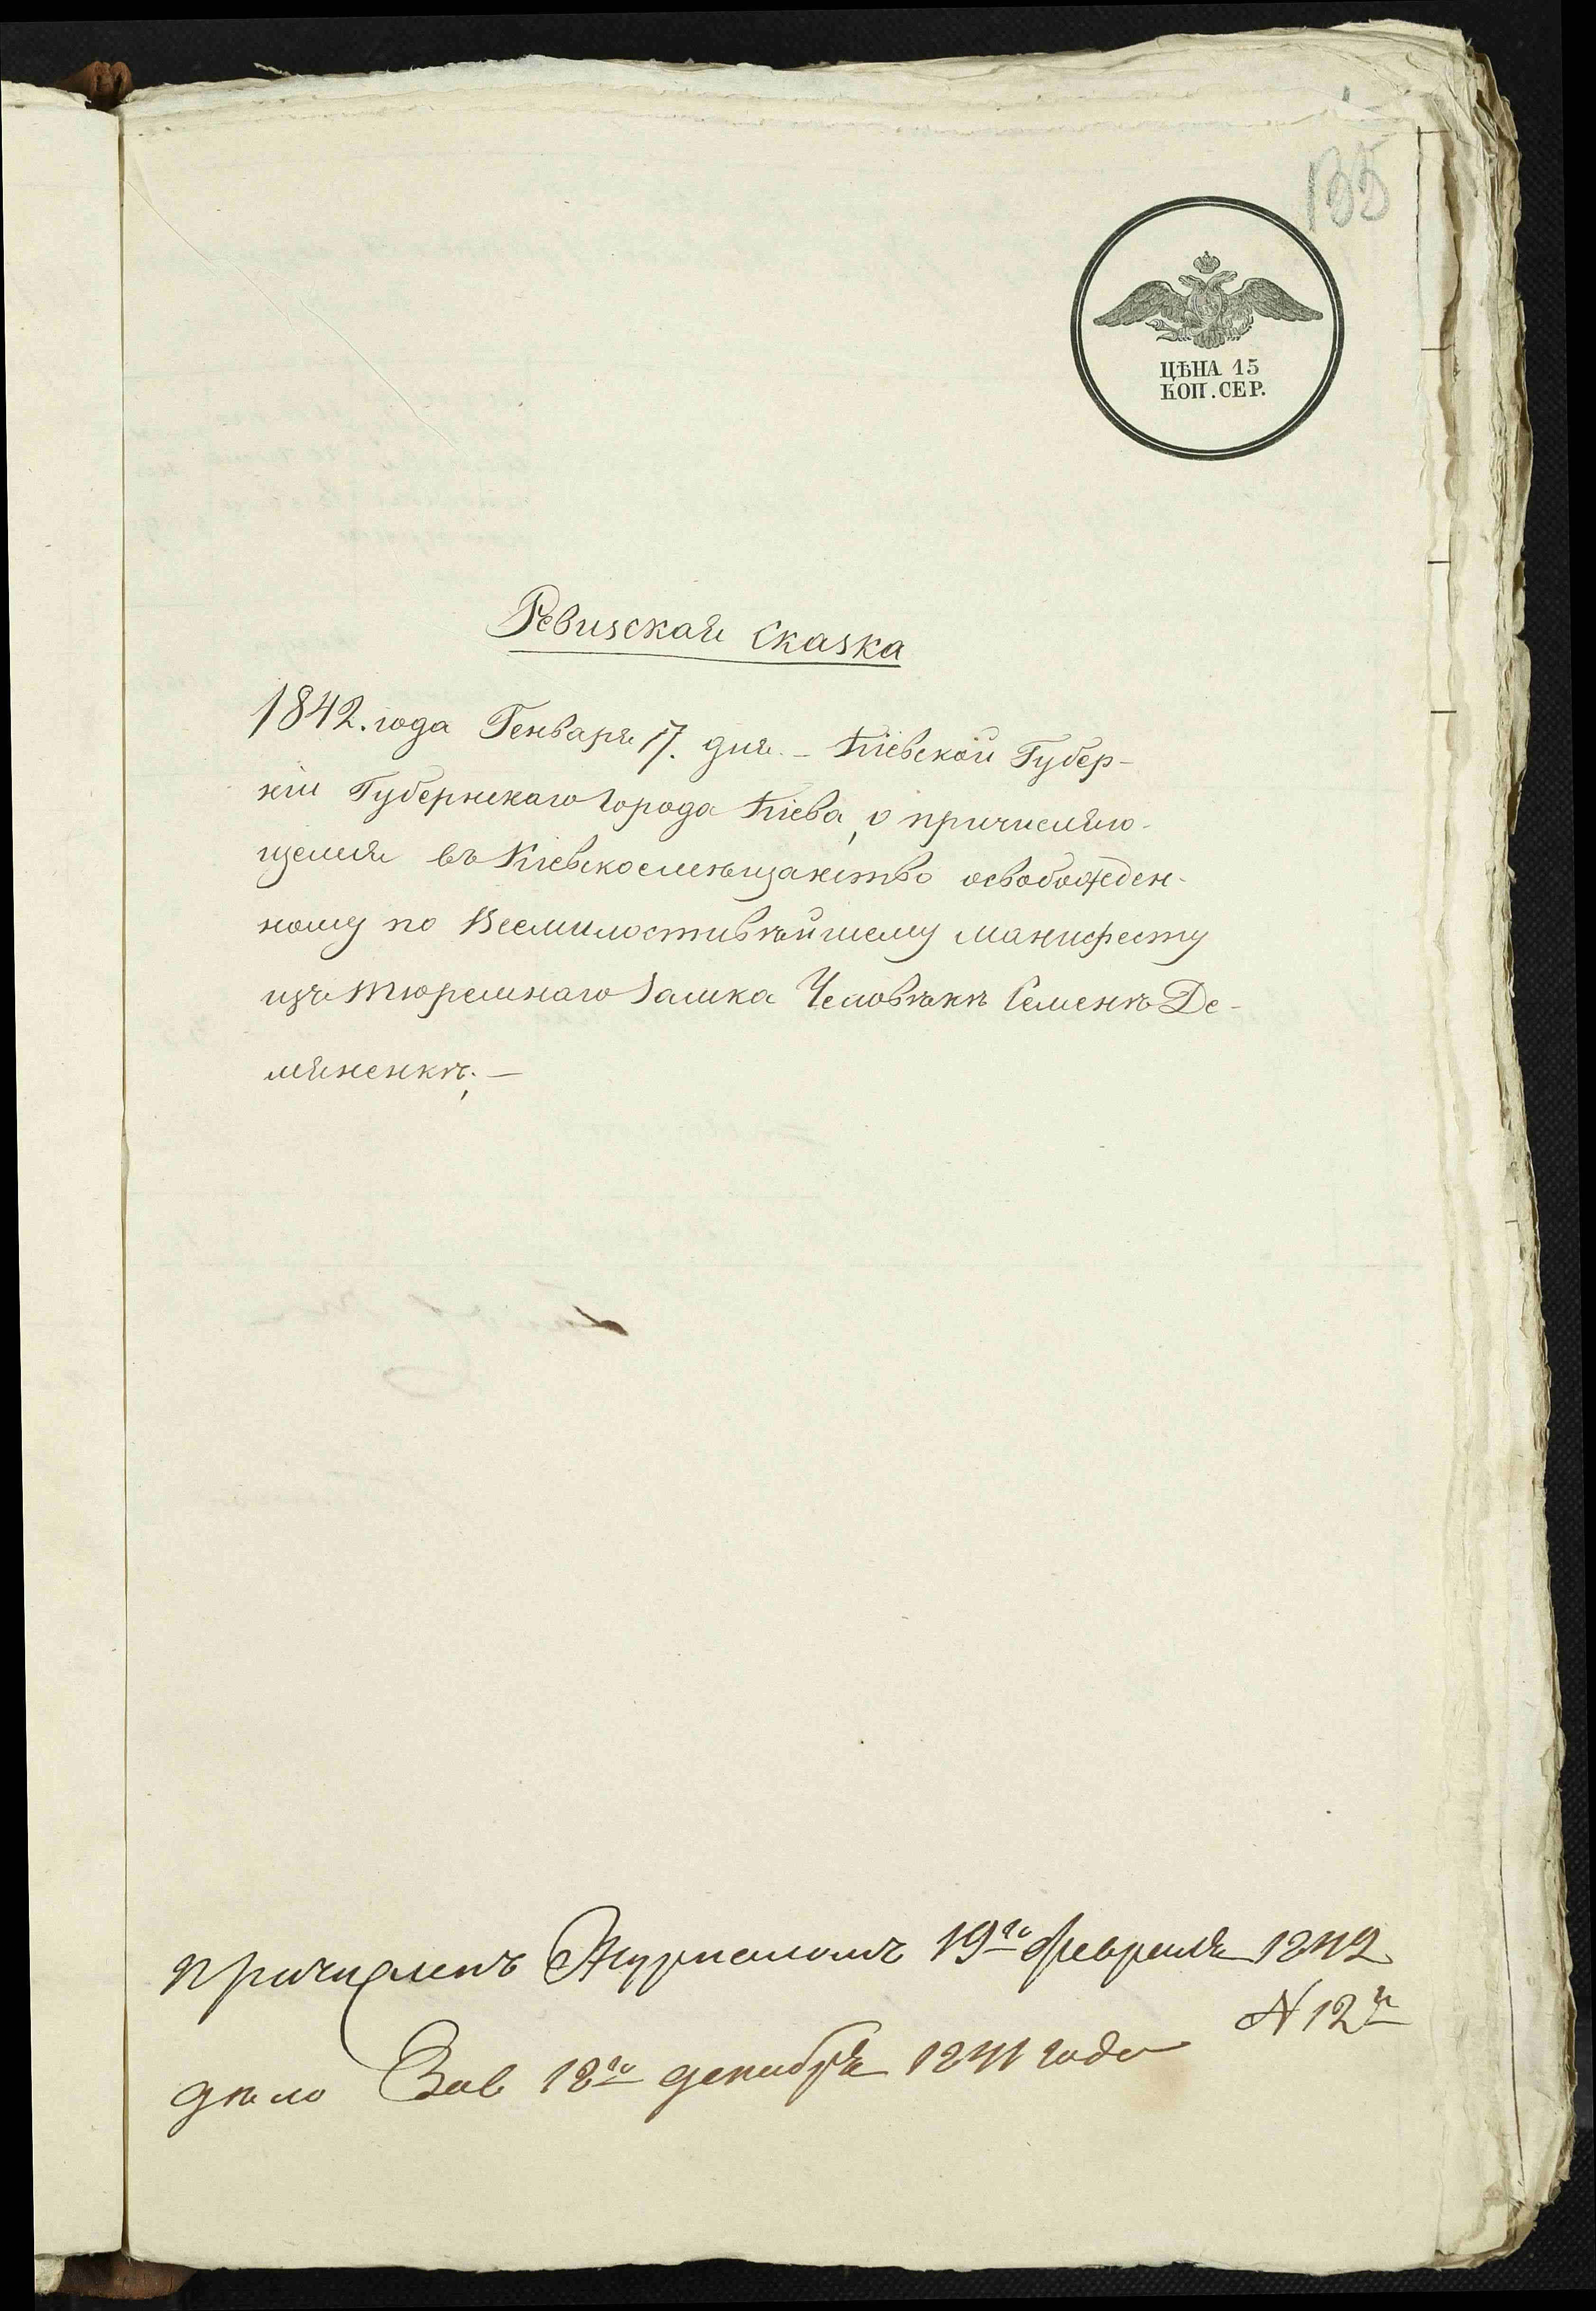 135
ЦѢНА 15
КОП. СЕР.
Ревизская Сказка
1842. года Генваря 17. дня. – Кіевской Губер-
ніи Губернскаго Города Кіева, о причисляю-
щемся въ Кіевское мещанство освобожден-
ному по Всемилостивѣйшему манифесту
изъ тюремнаго Замка Человѣкѣ Семенѣ Де-
мяненкѣ. —
причисленъ Журналомъ 19го февраля 1842
N 12й
дѣло Зав 18го декабря 1841 года